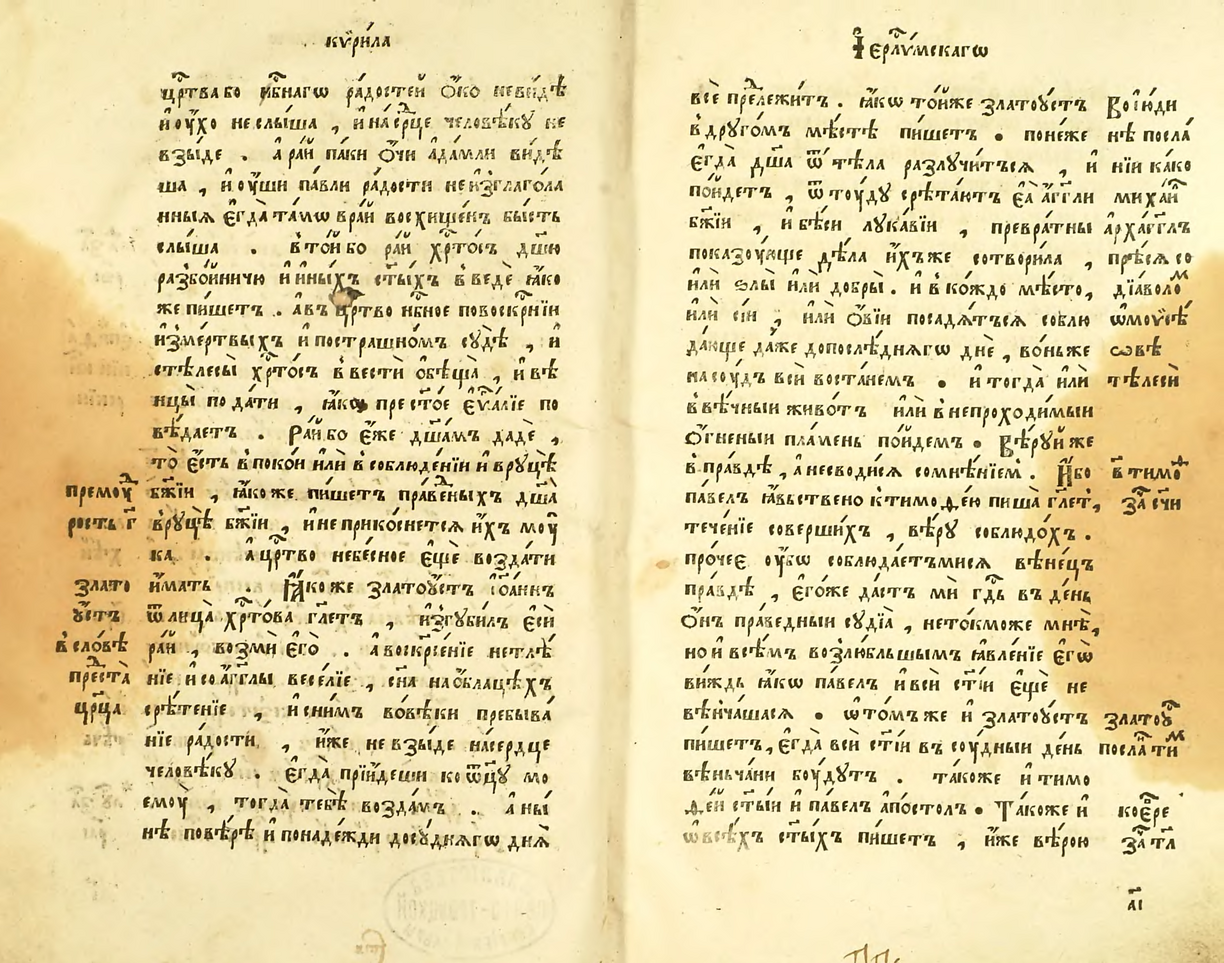 кѷри́ла
црⷭ҇тва бо нбⷭ҇наго ра́достей ѻ҆́ко неви́дѣ
и҆ оу҆́хо неслы́ша , и҆ на се́рⷣце человѣ́кꙋ не
взы́де . а ра́й па́ки ѻ҆́чи а҆да́мли ви́дѣ
ша , и҆ оу҆́ши па́вли ра́дости неи҆зглаго́ла
нныѧ є҆гда̀ та́мѡ в ра́й восхище́нъ бы́сть
слы́ша . в то́й бо ра́й хрⷭ҇то́съ дш҃ю
разбо́йничю и҆ и҆ны́хъ ст҃ы́хъ в ведѐ ꙗ҆́ко
же пи́шетъ . а въ црⷭ҇тво нбⷭ҇ное по воскрⷭ҇нїи
и҆з̾ ме́ртвыхъ и҆ по стра́шномъ сꙋдѣ̀ , и҆
с тѣлесы̀ хрⷭ҇то́съ в вестѝ ѻ҆бѣща̀ , и҆ вѣ
нцы̀ пода́ти , ꙗ҆́коже прест҃о́е є҆ѵⷢ҇а́лїе по
вѣ́даетъ . Ра́й бо є҆́же дш҃а́мъ дадѐ ,
то̀ є҆́сть в поко́и и҆лѝ в соблюде́нїи и҆ в рꙋцѣ̀
бж҃їи , ꙗ҆́коже пи́шетъ пра́веⷣныхъ дш҃а̀
в рꙋцѣ̀ бж҃їи , и҆ не прико́снетсѧ и҆́хъ моу҆́
ка . а црⷭ҇тво небе́сное є҆щѐ возда́ти
и҆́мать . Ꙗ҆́коже златоꙋ́стъ і҆ѡа́ннъ
ѿ лица̀ хрⷭ҇то́ва гл҃етъ , и҆згꙋби́лъ є҆сѝ
ра́й , возмѝ є҆го̀ . а воскрⷭ҇е́нїе нетлѣ́
нїе и҆ со а҆́гг҃лы весе́лїе , сн҃а на ѻ҆́блацѣхъ
срѣ́тенїе , и҆ с ни́мъ во вѣ́ки пребыва́
нїе ра́дости , и҆́же не взы́де на се́рдце
человѣ́кꙋ . є҆гда̀ прїи́деши ко ѻ҆тц҃ꙋ̀ мо
емоу̀ , тогда̀ тебѣ̀ возда́мъ . а ны́
нѣ повѣ́рѣ и҆ по наде́жди до сꙋ́днѧгѡ днѧ̀
премоу҆́ⷣ
рость г҃
злато
ꙋ҆́стъ
в сло́вѣ
преста̀ⷡ
црⷭ҇ца
І҆ерⷭ҇ли́мскагѡ
всѐ преⷣлежи́тъ . ꙗ҆́кѡ то́йже златоꙋ́стъ
в дрꙋго́мъ мѣ́стѣ пи́шетъ . поне́же
є҆гда̀ дш҃а ѿ тѣ́ла разлꙋчи́тъсѧ , и҆
по́йдетъ , ѿ тоу́дꙋ срѣта́ютъ є҆ѧ̀ а҆́гг҃ли
бж҃їи , и҆ бѣ́си лꙋка́вїи , превра́тны
показоу́юще дѣ́ла и҆́хъже сотвори́ла ,
и҆лѝ ѕлы̀ и҆лѝ добры̀ . и҆ в ко́ждо мѣ́сто ,
и҆лѝ сі́и , и҆лѝ ѻ҆́вїи посадѧ́тъсѧ соблю
да́юще да́же до послѣ́днѧгѡ днѐ , во́ньже
на соу́дъ всѝ воста́немъ . и҆ тогда̀ и҆лѝ
в вѣ́чныи живо́тъ и҆лѝ в непроходи́мыи
ѻ҆́гненыи пла́мень по́йдемъ . Вѣ́рꙋй же
в пра́вдѣ , а не сводисѧ сомнѣ́нїемъ . И҆́бо
па́велъ ꙗ҆́вьствено к тимоѳе́ю пиша̀ гл҃етъ ,
тече́нїе соверши́хъ , вѣ́рꙋ соблюдо́хъ .
про́чеє оу҆́бѡ соблюда́етъмисѧ вѣне́цъ
пра́вдѣ , є҆го́же да́стъ мѝ гдⷭ҇ь въ де́нь
ѻ҆́нъ пра́ведныи сꙋдїа̀ , нетокмо́же мнѣ̀ ,
но и҆ всѣ́мъ возлю́бльшымъ ꙗ҆вле́нїе є҆гѡ̀
ви́ждь ꙗ҆́кѡ па́велъ и҆ всѝ ст҃і́и є҆щѐ не
вѣнча́шасѧ . ѡ҆ то́мъже и҆ златоꙋ́стъ
пи́шетъ , є҆гда̀ всѝ ст҃і́и въ соу́дныи де́нь
вѣ́ньчани бо́удꙋтъ . та́коже и҆ тимо
ѳе́й ст҃ы́и и҆ па́велъ а҆по́столъ . Та́коже и҆
ѡ҆ всѣ́хъ ст҃ы́хъ пи́шетъ , и҆́же вѣ́рою
михаи́
а҆рха́гг҃лъ
дїа́волоⷨ
тѣлеси̂
в тимоⷴ
златоꙋⷭ҇
посла тиⷨ
ко є҆ⷡре
а҃і